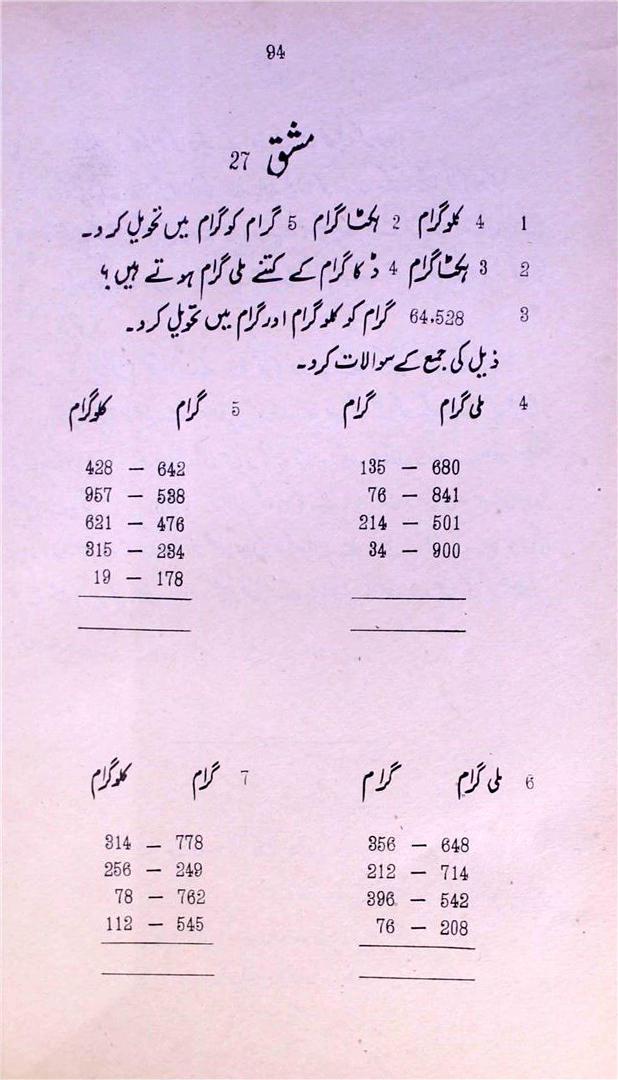 94
مشق 27
1 4 کلوگرام 2 ہکٹاگرام 5 گرام کو گرام میں تحویل کرو۔
2 3 ہکٹاگرام 4 ڈکاگرام کے کتنے ملی گرام ہوتے ہیں؟
3 64.528 گرام کو کلوگرام اور گرام میں تحویل کرو۔
ذیل کی جمع کے سوالات کرو۔
4 ملی گرام گرام
680 — 135
841 — 76
501 — 214
900 — 34
5 گرام کلوگرام
642 — 428
538 — 957
476 — 621
234 — 315
178 — 19
6 ملی گرام گرام
648 — 356
714 — 212
542 — 396
208 — 76
7 گرام کلوگرام
778 — 314
249 — 256
762 — 78
545 — 112